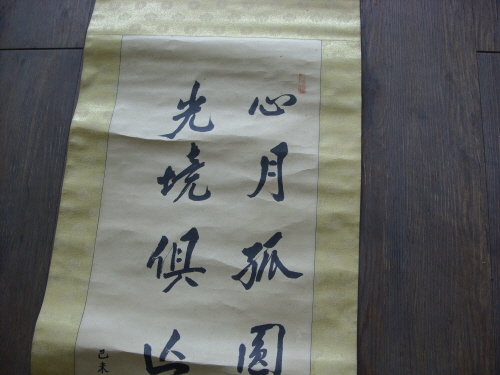 心月孤圓
光境俱亡
己未